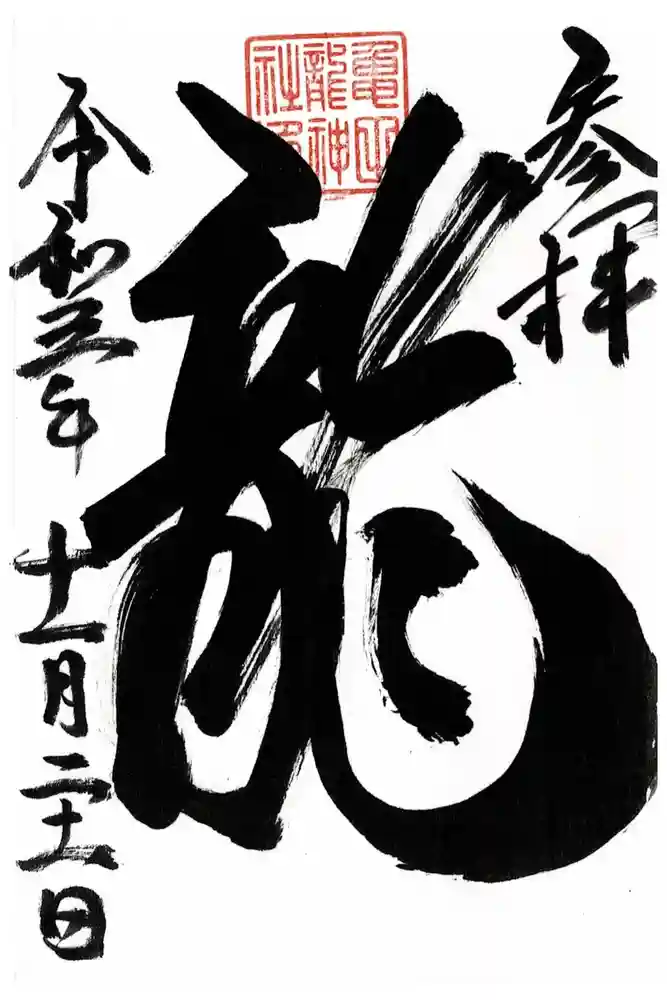 参拝
亀山
龍神
社
龍
令和三年十一月二十一日